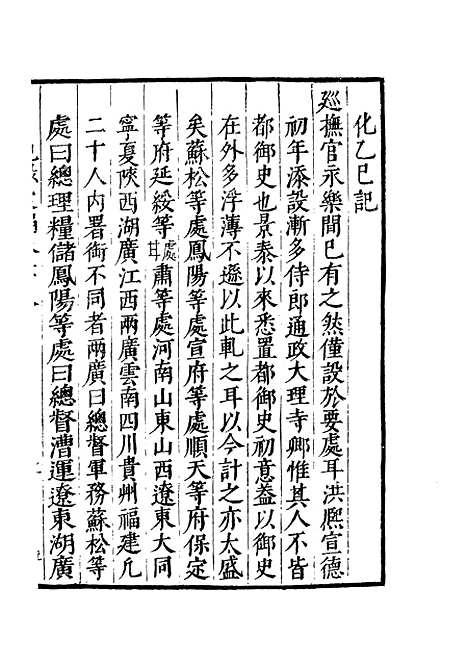 化乙巳記
廵撫官永樂間已有之然僅設於要處耳洪熙宣德
初年添設漸多侍郎通政大理寺卿惟其人不皆
都御史也景泰以來悉置都御史初意葢以御史
在外多浮薄不遜以此軋之耳以今計之亦太盛
矣蘇松等處鳳陽等處宣府等處順天等府保定
等府延綏等處耳肅等處河南山東山西遼東大同
寧夏陜西湖廣江西兩廣雲南四川貴州福建凢
二十人内署銜不同者兩廣曰總督軍務蘇松等
處曰總理糧儲鳳陽等處曰總督漕運遼東湖廣